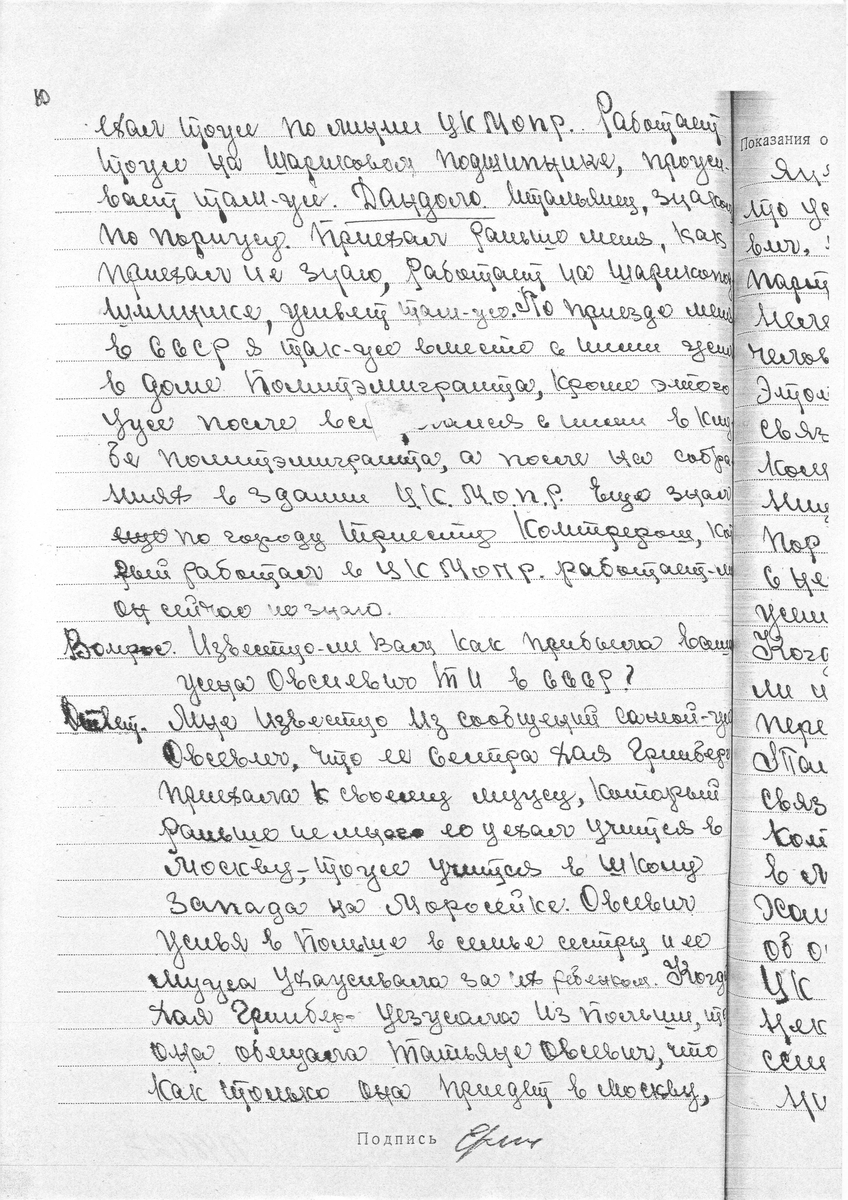 10
ехал тоже по линии ЦК Мопр. Работает
тоже на Шариковом подшипнике, прожи-
вает там-же. Дандоло. Итальянец, знаком
по парижу. Приехал раньше меня, как
приехал не знаю, работает на Шарикопод
шипнике, живет там-же. По приезде меня
в СССР я так-же вместе с ними жил
в доме Политэмигранта, кроме этого
уже после с ними в клу
бе политэмигранта, а после на собра
ниях в здании ЦК М.О.П.Р. Еще знаю
по городу Триесту кото
рый работал в ЦК Мопр. работает-ли
он сейчас не знаю.
Вопрос. Известно-ли Вам как прибыла ваша
жена Овсиевич Т И в СССР?
Ответ. Мне известно из сообщений самой-же
Овсевич, что ее сестра Хая Гринберг
приехала к своему мужу, который
раньше не много ее уехал учится в
Москву, тоже учится в школу
Запада на Моросейке. Овсевич
живя в Польше в семье сестры и ее
мужа ухаживала за их ребенком. Когда
Хая Гринбер- уезжала из Польши, то
она обещала Татьяне Овсевич, что
как только она приедет в Москву,
Подпись
Показания о
что
вич,
парт
чело
этом
связ
ком
пор
с не
Когд
ли и
пере
связ
ком
в М
об о
ЦК